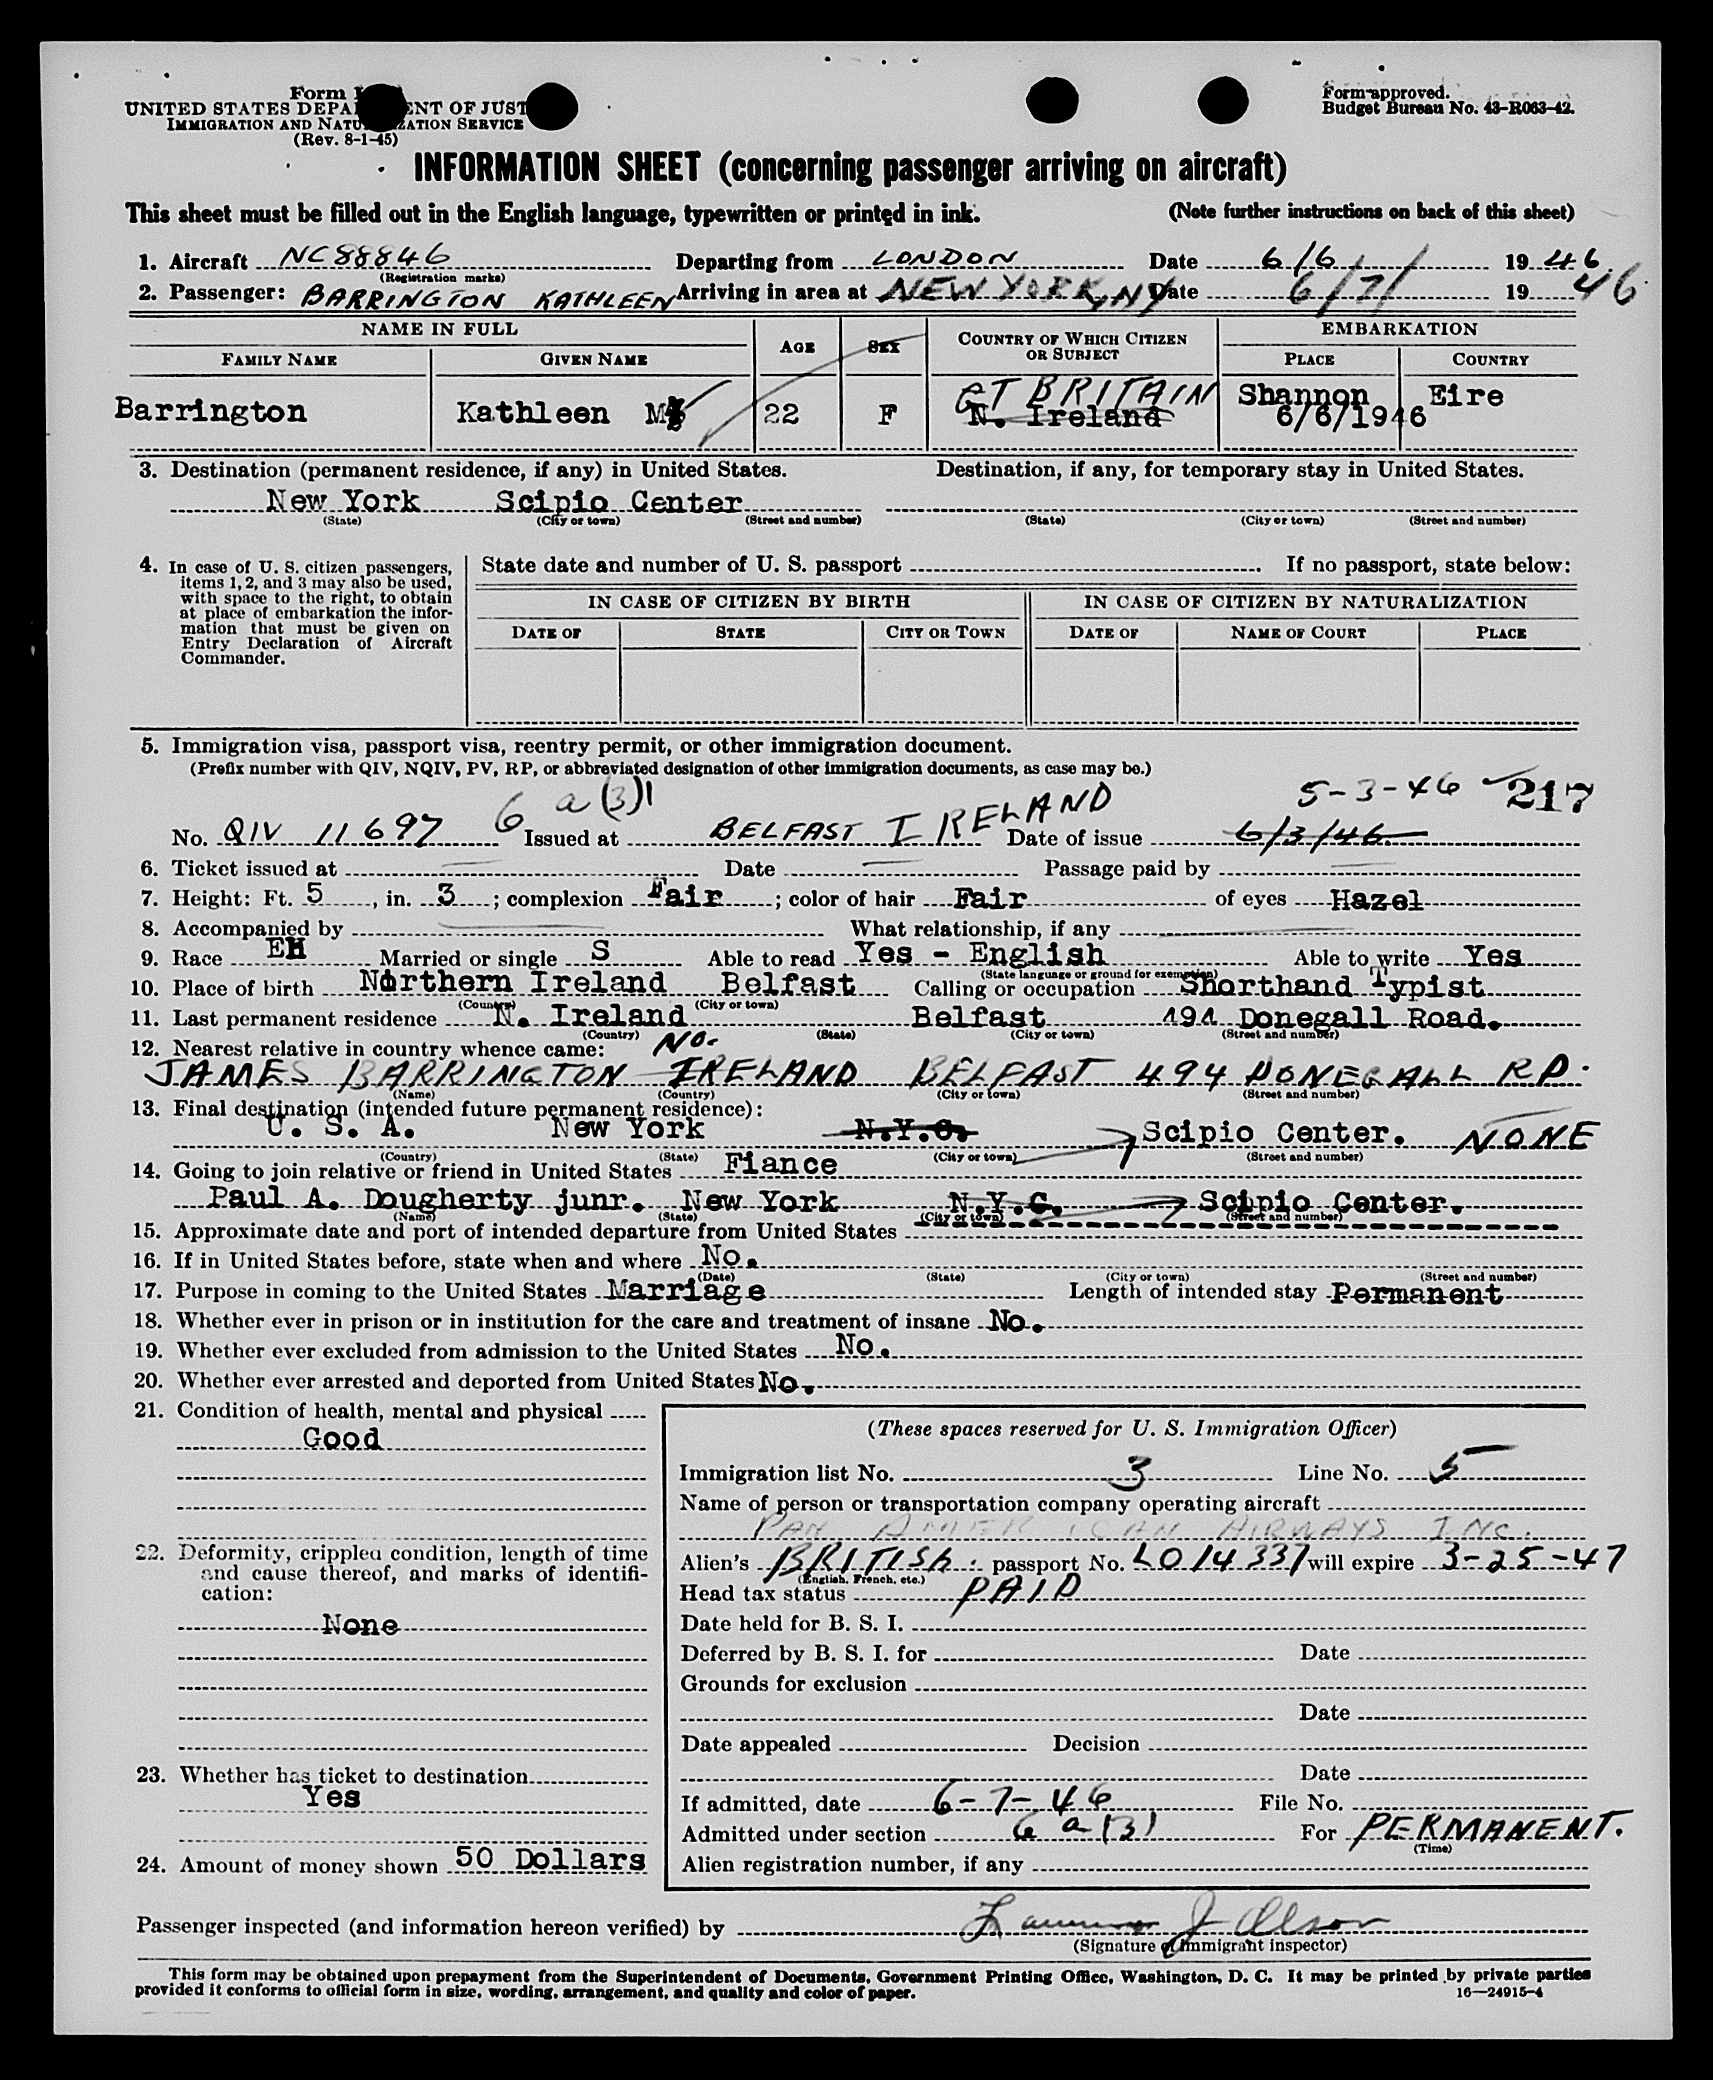 Form
UNITED STATES DEPA ENT OF JUST
IMMIGRATION AND NATU ZATION SERVICE
(Rev. 8-1-45)
Form approved.
Budget Bureau No. 43-R063-42.
INFORMATION SHEET (concerning passenger arriving on aircraft)
This sheet must be filled out in the English language, typewritten or printed in ink. (Note further instructions on back of this sheet)
1. Aircraft NC88846 Departing from LONDON Date 6/6 1946
(Registration marks)
2. Passenger: BARRINGTON KATHLEEN Arriving in area at NEW YORK, NY Date 6/7/ 1946
NAME IN FULL AGE SEX COUNTRY OF WHICH CITIZEN OR SUBJECT EMBARKATION
FAMILY NAME GIVEN NAME PLACE COUNTRY
GT BRITAIN
Barrington Kathleen M 22 F N. Ireland Shannon Eire
6/6/1946
3. Destination (permanent residence, if any) in United States. Destination, if any, for temporary stay in United States.
New York Scipio Center
(State) (City or town) (Street and number) (State) (City or town) (Street and number)
4. In case of U. S. citizen passengers, items 1, 2, and 3 may also be used, with space to the right, to obtain at place of embarkation the information that must be given on Entry Declaration of Aircraft Commander.
State date and number of U. S. passport . If no passport, state below:
IN CASE OF CITIZEN BY BIRTH IN CASE OF CITIZEN BY NATURALIZATION
DATE OF STATE CITY OR TOWN DATE OF NAME OF COURT PLACE
5. Immigration visa, passport visa, reentry permit, or other immigration document.
(Prefix number with QIV, NQIV, PV, RP, or abbreviated designation of other immigration documents, as case may be.)
6 a (3) 5-3-46 217
No. QIV 11697 Issued at BELFAST IRELAND Date of issue 6/3/46
6. Ticket issued at Date Passage paid by
7. Height: Ft. 5, in. 3; complexion Fair; color of hair Fair of eyes Hazel
8. Accompanied by What relationship, if any
9. Race EH Married or single S Able to read Yes - English Able to write Yes
(State language or ground for exemption)
10. Place of birth Northern Ireland Belfast Calling or occupation Shorthand Typist
(Country) (City or town)
11. Last permanent residence N. Ireland Belfast 494 Donegall Road.
(Country) (State) (City or town) (Street and number)
12. Nearest relative in country whence came: NO.
JAMES BARRINGTON IRELAND BELFAST 494 DONEGALL RD.
(Name) (Country) (City or town) (Street and number)
13. Final destination (intended future permanent residence):
U. S. A. New York N.Y.C. Scipio Center. NONE
(Country) (State) (City or town) (Street and number)
14. Going to join relative or friend in United States Fiance
Paul A. Dougherty junr. New York N.Y.C. Scipio Center.
(Name) (State) (City or town) (Street and number)
15. Approximate date and port of intended departure from United States
16. If in United States before, state when and where No.
(Date) (State) (City or town) (Street and number)
17. Purpose in coming to the United States Marriage Length of intended stay Permanent
18. Whether ever in prison or in institution for the care and treatment of insane No.
19. Whether ever excluded from admission to the United States No.
20. Whether ever arrested and deported from United States No.
21. Condition of health, mental and physical
Good
22. Deformity, crippled condition, length of time and cause thereof, and marks of identification:
None
23. Whether has ticket to destination
Yes
24. Amount of money shown 50 Dollars
(These spaces reserved for U. S. Immigration Officer)
Immigration list No. 3 Line No. 5
Name of person or transportation company operating aircraft
PAN AMERICAN AIRWAYS INC.
Alien's BRITISH passport No. LO14337 will expire 3-25-47
(English, French, etc.)
Head tax status PAID
Date held for B. S. I.
Deferred by B. S. I. for Date
Grounds for exclusion
Date
Date appealed Decision
Date
If admitted, date 6-7-46 File No.
Admitted under section 6 a (3) For PERMANENT.
(Time)
Alien registration number, if any
Passenger inspected (and information hereon verified) by J Olson
(Signature of immigrant inspector)
This form may be obtained upon prepayment from the Superintendent of Documents, Government Printing Office, Washington, D. C. It may be printed by private parties
provided it conforms to official form in size, wording, arrangement, and quality and color of paper. 16—24915-4